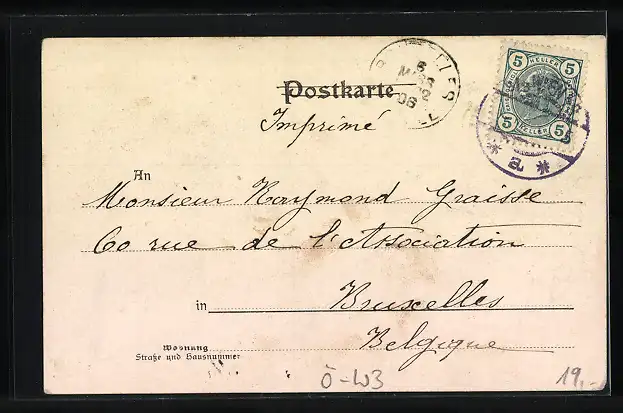 Postkarte
Imprimé
An
Monsieur Raymond Graisse
60 rue de l'Association
in Bruxelles
Belgique
Wohnung
Straße und Hausnummer
Ö-W3
19,-
5 HELLER 5
5 HELLER 5
BRUXELLES
6
MARS
12
06
* a *